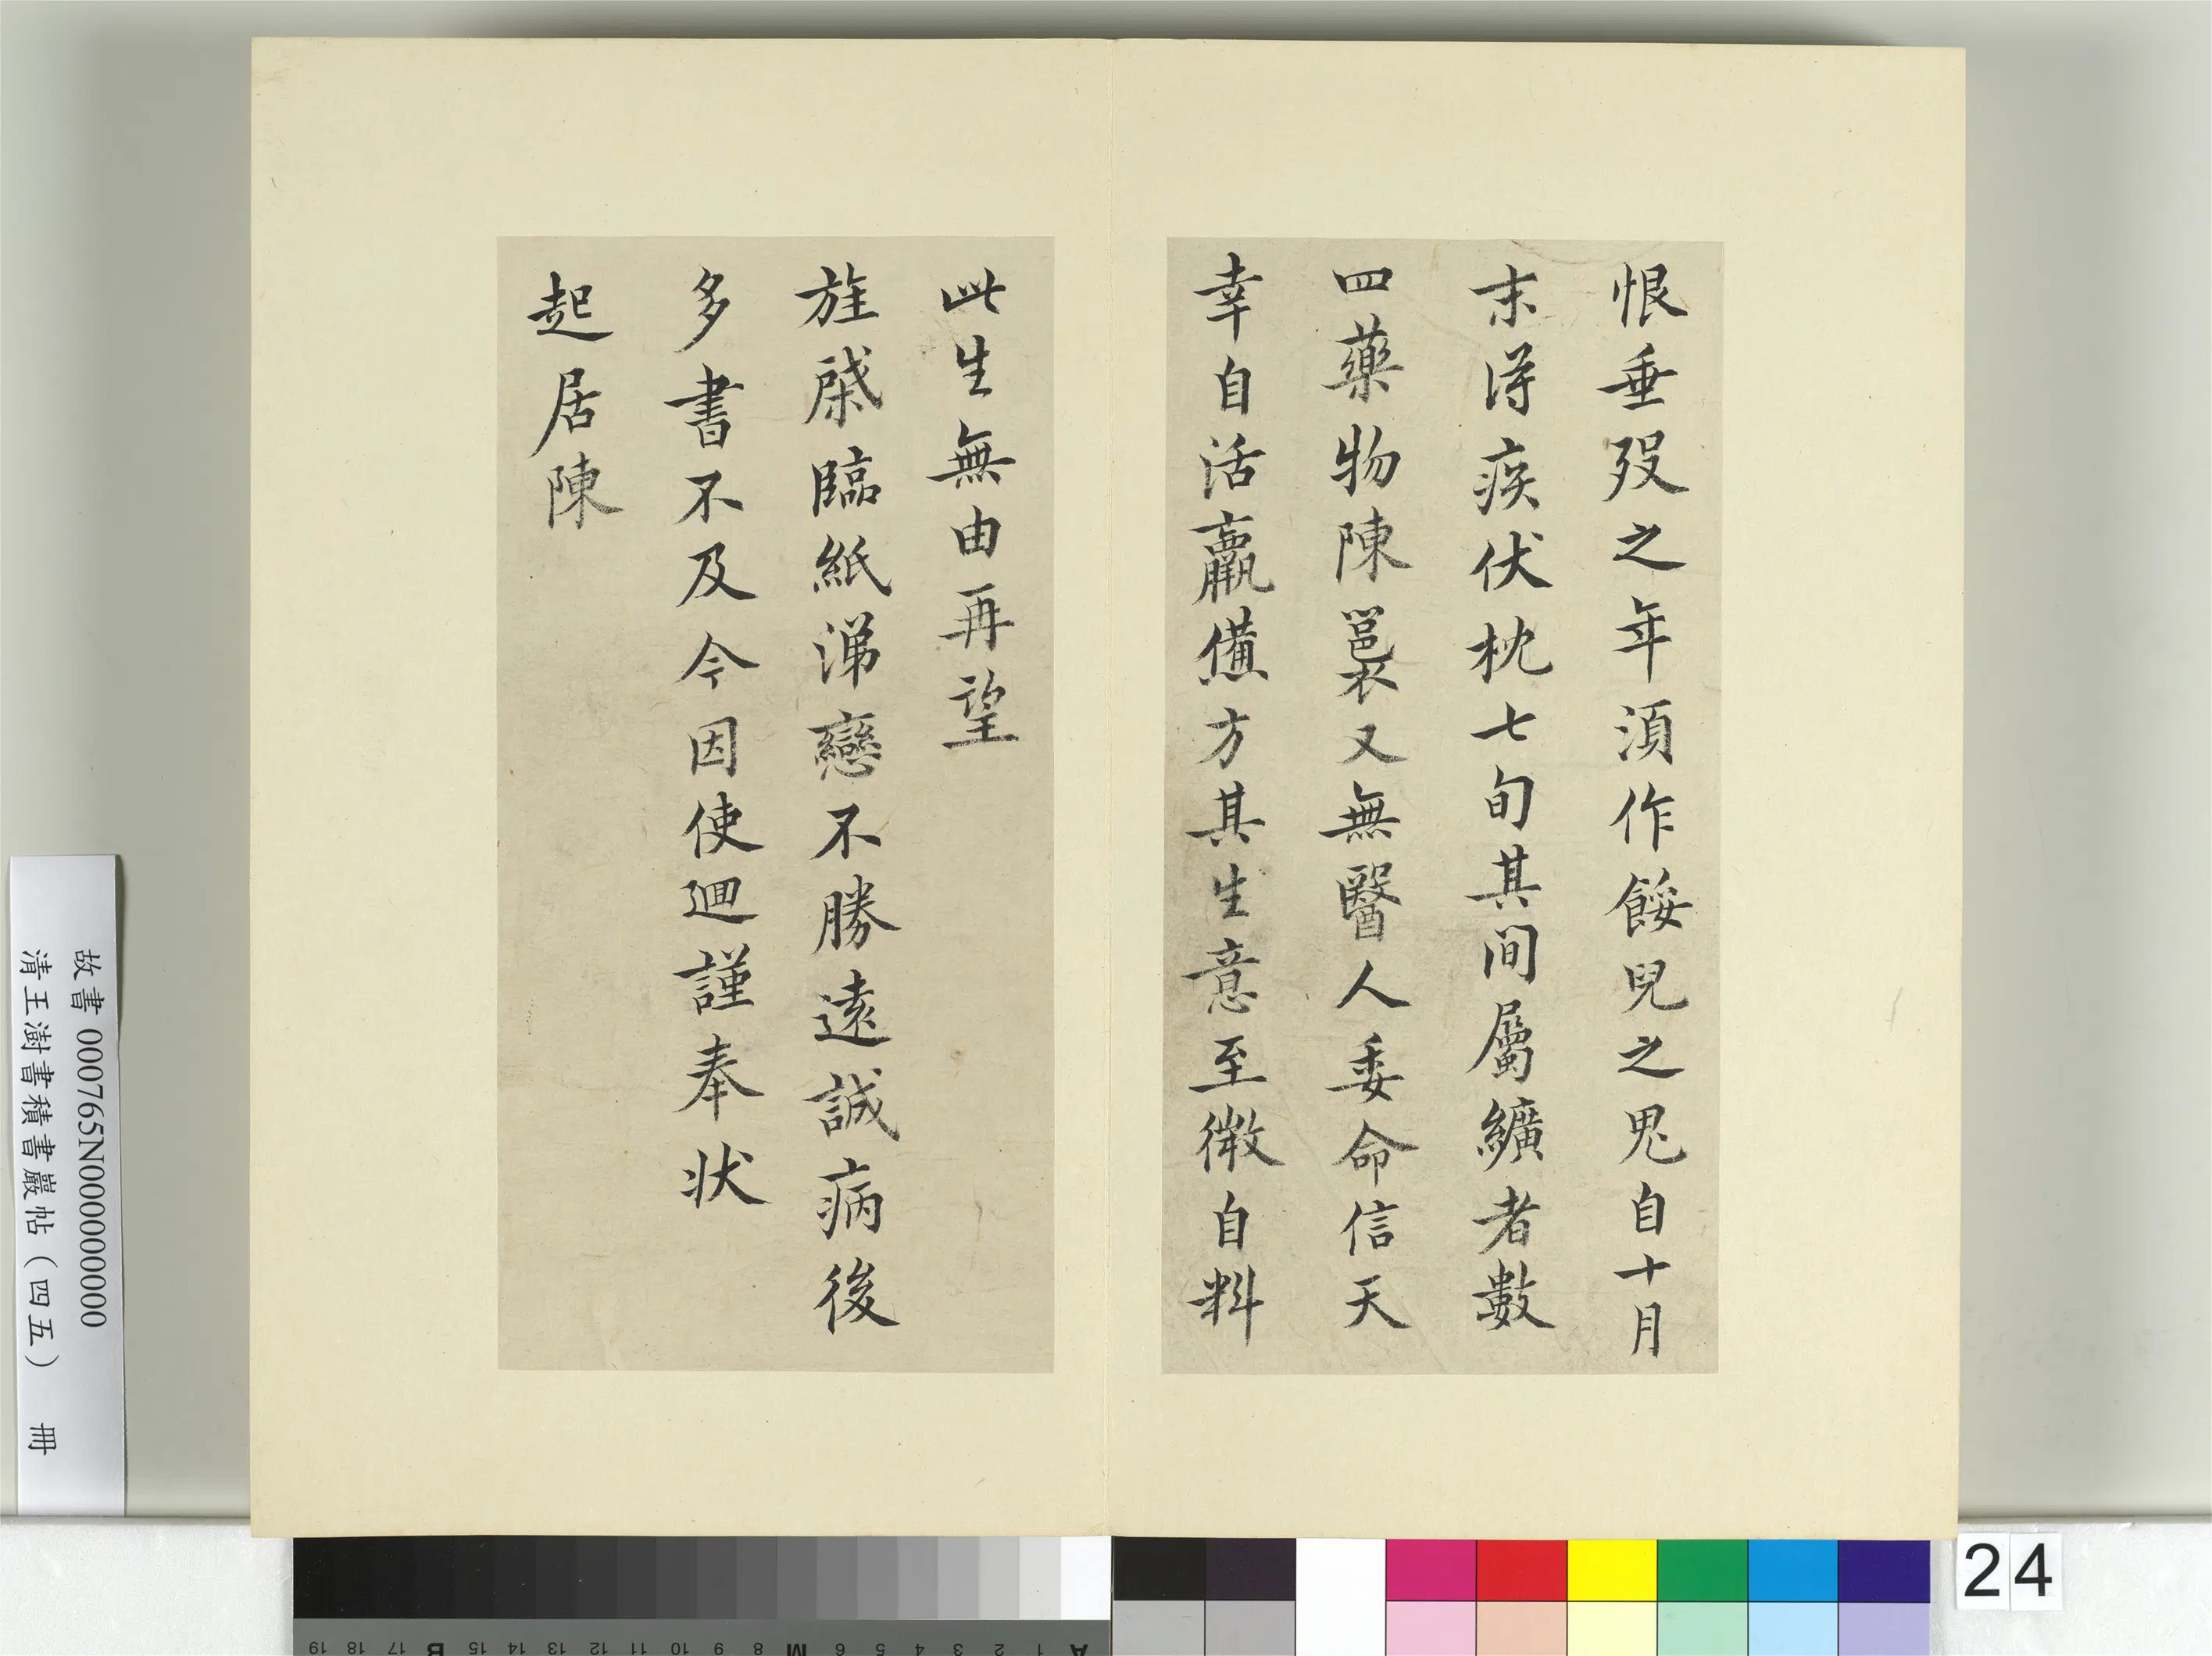 恨垂歿之年須作餒兒之鬼自十月
末得疾伏枕七旬其間屬纊者數
四藥物陳裛又無醫人委命信天
幸自活羸憊方其生意至微自料
此生無由再望
旌棨臨紙涕戀不勝遠誠病後
多書不及今因使迴謹奉狀
起居陳
故書 000765N000000000
清王澍書積書巖帖（四五） 冊
24
A 1 2 3 4 5 6 M 8 9 10 11 12 13 14 15 B 17 18 19